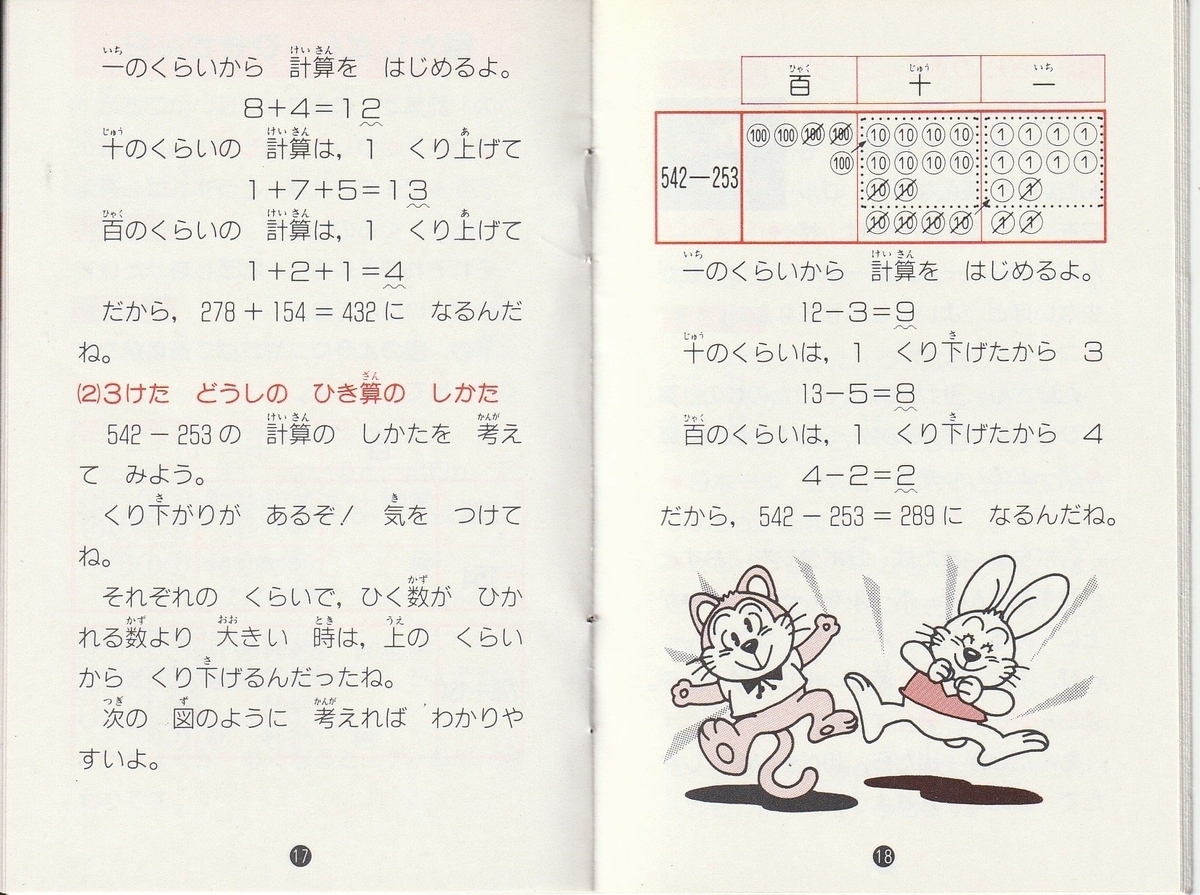 一のくらいから 計算を はじめるよ。
8+4=12
十のくらいの 計算は, 1 くり上げて
1+7+5=13
百のくらいの 計算は, 1 くり上げて
1+2+1=4
だから, 278+154=432に なるんだ
ね。
(2)3けた どうしの ひき算の しかた
542-253の 計算の しかたを 考え
て みよう。
くり下がりが あるぞ! 気を つけて
ね。
それぞれの くらいで, ひく数が ひか
れる数より 大きい 時は, 上の くらい
から くり下げるんだったね。
次の 図のように 考えれば わかりや
すいよ。
17
百 十 一
542-253
100 100 100 100 10 10 10 10 1 1 1 1
100 10 10 10 10 1 1 1 1
10 10 1 1
10 10 10 10 1 1
一のくらいから 計算を はじめるよ。
12-3=9
十のくらいは, 1 くり下げたから 3
13-5=8
百のくらいは, 1 くり下げたから 4
4-2=2
だから, 542-253=289に なるんだね。
18